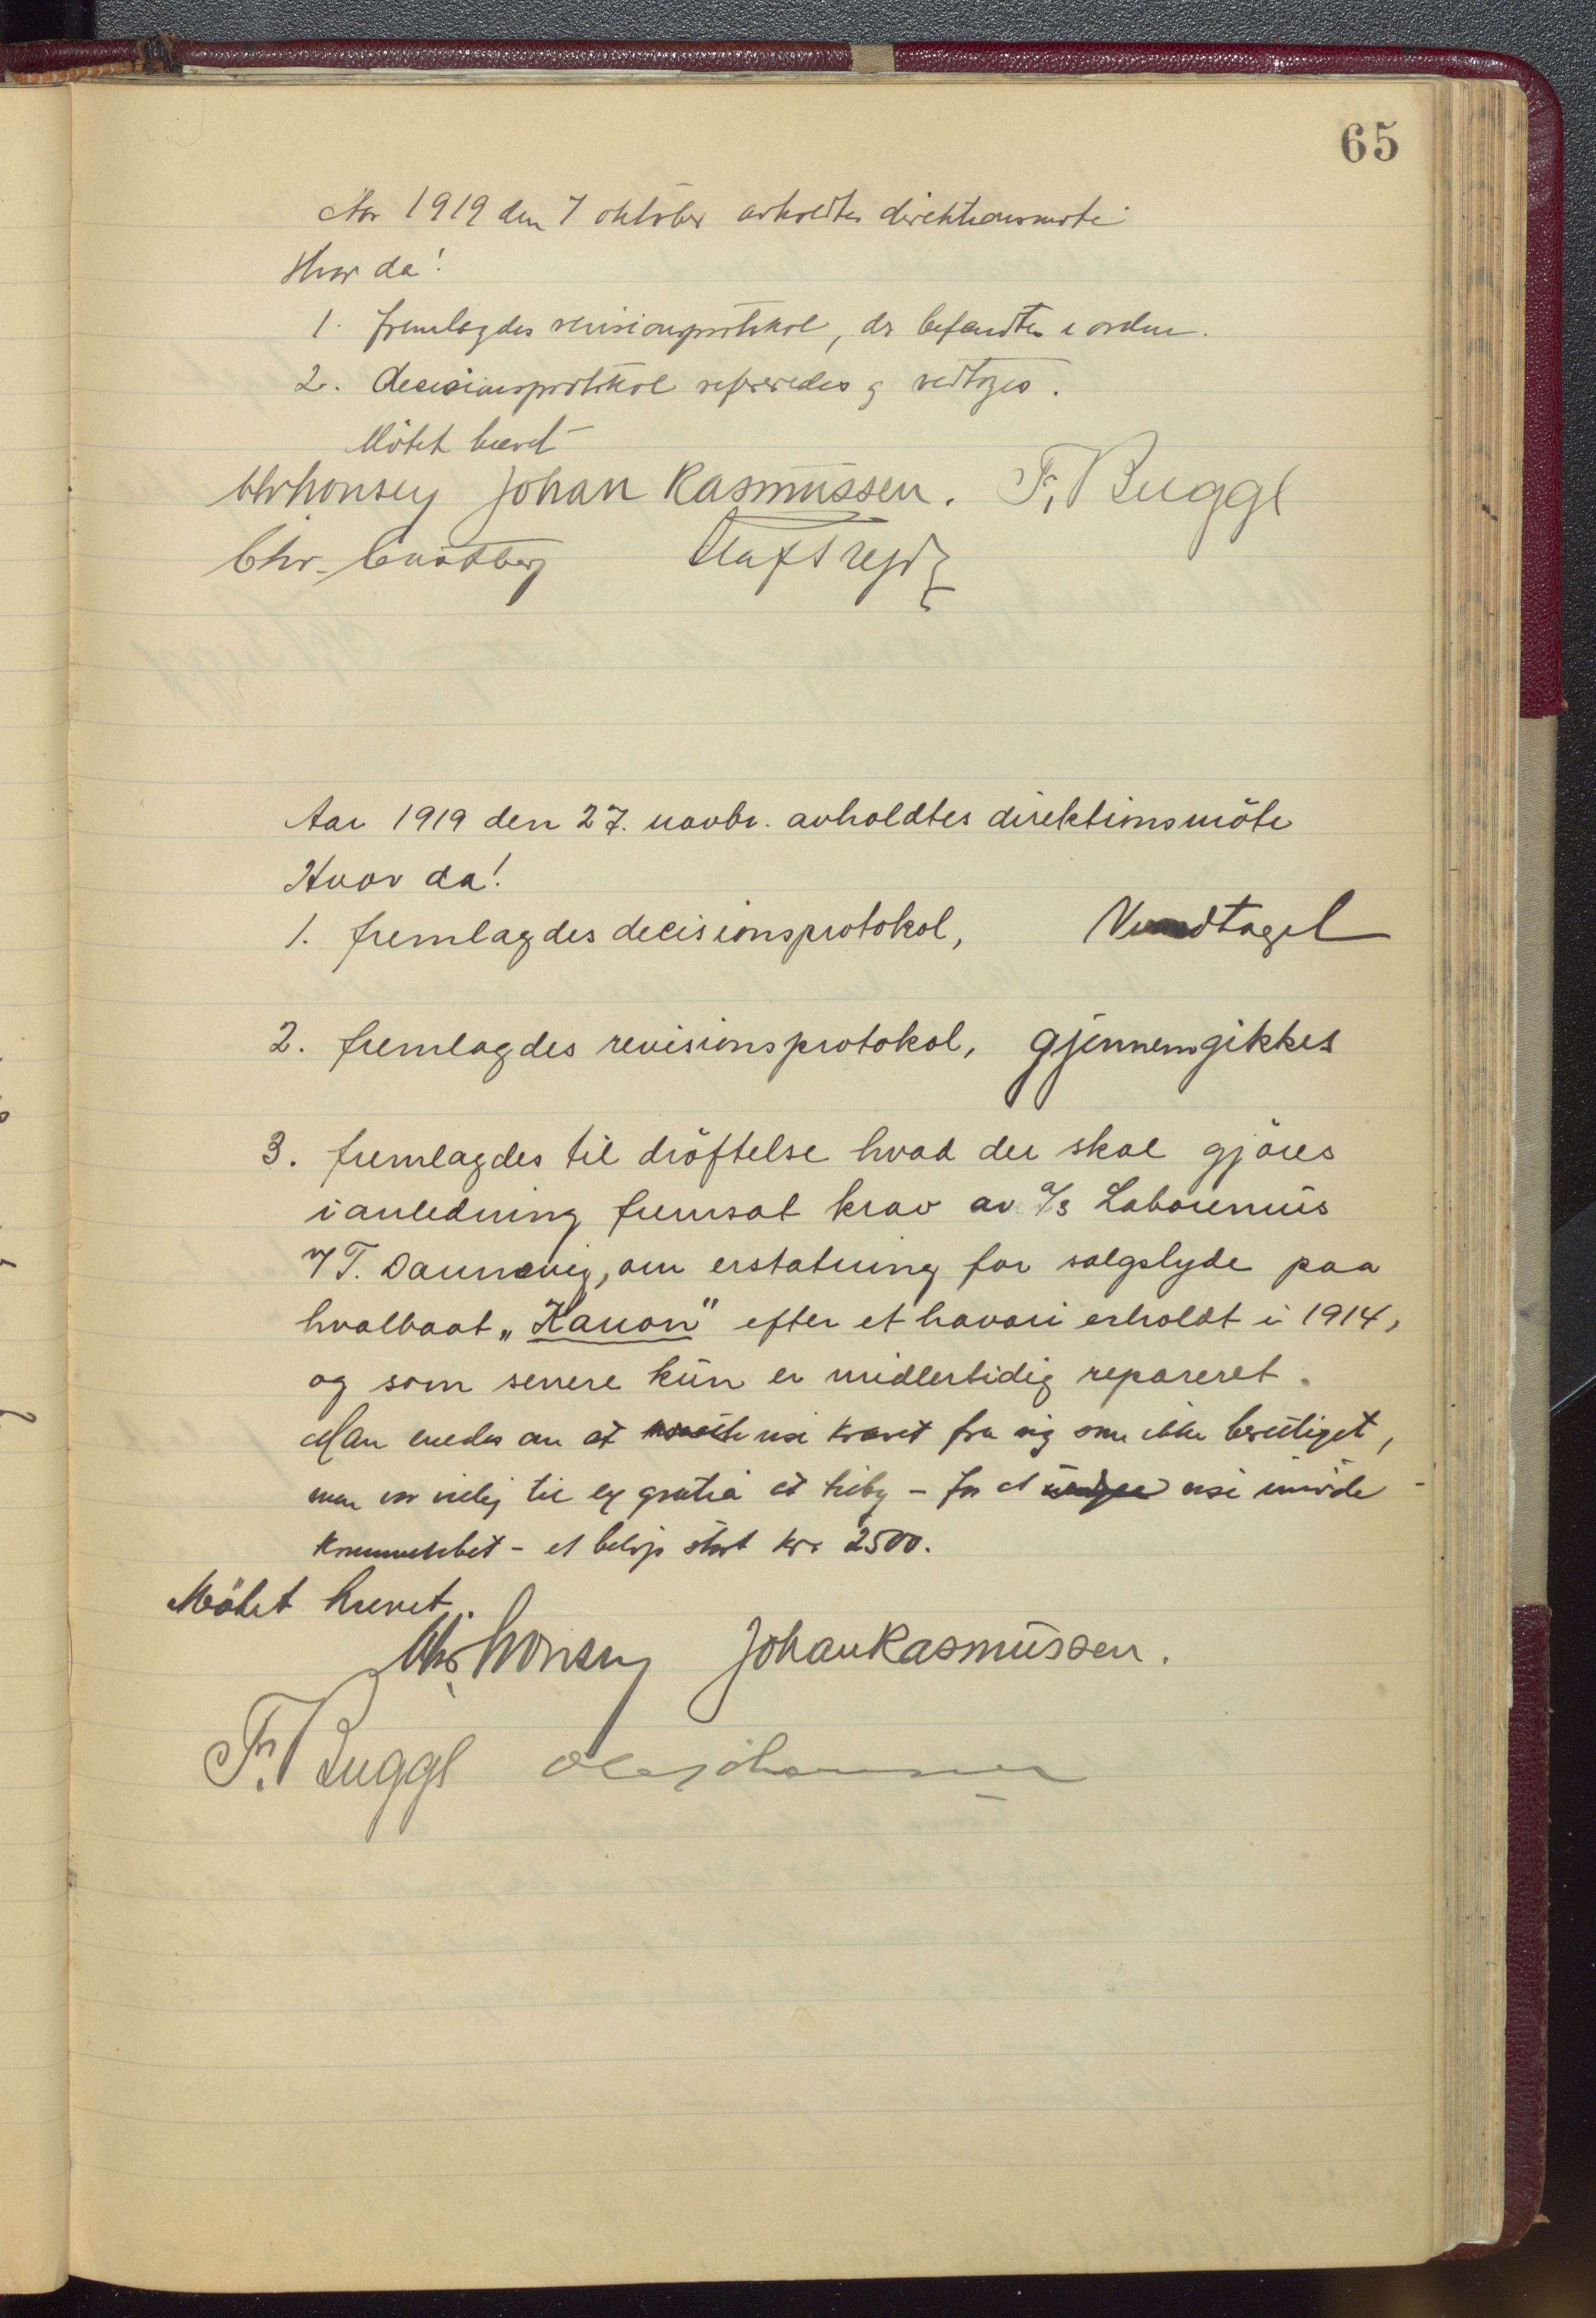 65
Aar 1919 den 7 oktober avholdtes direktionsmøte
Hvor da!
1. fremlagdes revisionsprotokol, der befandtes i orden.
2. decisionsprotokol refereredes og vedtoges.
Møtet hævet
Johan Rasmussen. F. Bugge
Chr.
Aar 1919 den 27. novbr. avholdtes direktionsmöte
Hvor da!
1. fremlagdes decisionsprotokol, Vedtaget
2. fremlagdes revisionsprotokol, gjennemgikkes
3. fremlagdes til dröftelse hvad der skal gjöres
i anledning fremsat krav av a/s Laboremus
v/ T. Dannevig, om erstatning for salgslyde paa
hvalbaat „Kanon" efter et havari erholdt i 1914,
og som senere kun er midlertidig reparert.
Man enedes om at vise kravet fra sig som ikke berettiget,
men var villig til ex gratia at tilby - for at vise imöte-
kommenhet - et belöp stort kr. 2500.
Mötet hævet.
Johan Rasmussen.
F. Bugge